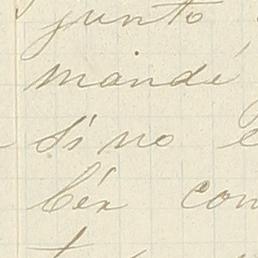 junto
mandé
sino
bér con